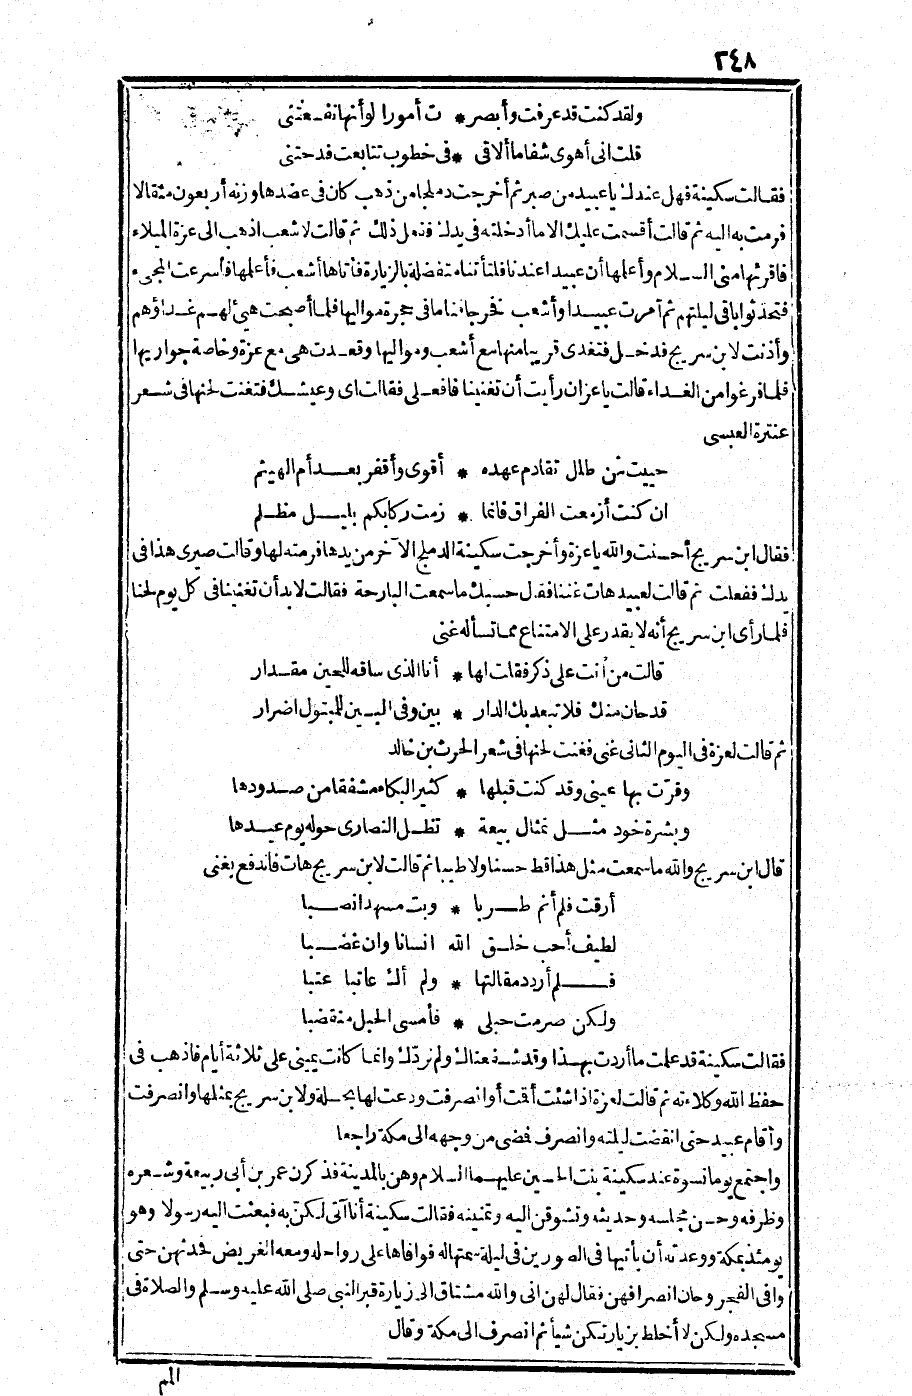 ٢٤٨
ولقد كنت قد عرفت وأبصر * ت أمورا لو أنها نفعتنى
قلت انى أهوى شفا ما ألاقى * فى خطوب تتابعت فدحتنى
فقالت سكينة فهل عندك يا عبيد من صبر ثم أخرجت دملجا من ذهب كان فى عضدها وزنه أربعون مثقالا
فرمت به اليه ثم قالت أقسمت عليك الا ما أدخلته فى يدك ففعل ذلك ثم قالت لاشعب اذهب الى عزة الميلاء
فاقرئها منى السلام وأعلمها أن عبيدا عندنا فلتأتنا متفضلة بالزيارة فأتاها أشعب فأعلمها فأسرعت المجىء
فتحدثوا باقى ليلتهم ثم أمرت عبيدا وأشعب فخرجا فناما فى حجرة مواليها فلما أصبحت هيئ لهم غداؤهم
وأذنت لابن سريج فدخل فتغدى قريبا منها مع أشعب ومواليها وقعدت هى مع عزة وخاصة جواريها
فلما فرغوا من الغداء قالت يا عز ان رأيت أن تغنينا فافعلى فقالت اى وعيشك فتغنت لحنها فى شعر
عنترة العبسى
حييت من طلل تقادم عهده * أقوى وأقفر بعد أم الهيثم
ان كنت أزمعت الفراق فانما * زمت ركابكم بليل مظلم
فقال ابن سريج أحسنت والله يا عزة وأخرجت سكينة الدملج الآخر من يدها فرمته لها وقالت صيرى هذا فى
يدك ففعلت ثم قالت لعبيد هات غننا فقال حسبك ما سمعت البارحة فقالت لا بد أن تغنينا فى كل يوم لحنا
فلما رأى ابن سريج أنه لا يقدر على الامتناع مما تسأله غنى
قالت من أنت على ذكر فقلت لها * أنا الذى ساقه للحين مقدار
قد حان منك فلا تبعد بك الدار * بين وفى البين للمتبول اضرار
ثم قالت لعزة فى اليوم الثانى غنى فغنت لحنها فى شعر الحرث بن خالد
وقرت بها عينى وقد كنت قبلها * كثير البكاء مشفقا من صدودها
وبشرة خود مثل تمثال بيعة * تظل النصارى حوله يوم عيدها
قال ابن سريج والله ما سمعت مثل هذا قط حسنا ولا طيبا ثم قالت لابن سريج هات فاندفع يغنى
أرقت فلم أنم طربا * وبت مسهدا نصبا
لطيف أحب خلق الله انسانا وان غضبا
فلم أردد مقالتها * ولم أك عاتبا عتبا
ولكن صرمت حبلى * فأمسى الحبل منقضبا
فقالت سكينة قد علمت ما أردت بهذا وقد شفعناك ولم نردك وانما كانت يمينى على ثلاثة أيام فاذهب فى
حفظ الله وكلاءته ثم قالت لعزة اذا شئت أقت أو انصرفت ودعت لها بحلة ولابن سريج بمثلها وانصرفت
وأقام عبيد حتى انقضت ليلته وانصرف فمضى من وجهه الى مكة راجعا
واجتمع يوما نسوة عند سكينة بنت الحسين عليهما السلام وهن بالمدينة فذكرن عمر بن أبى ربيعة وشعره
وظرفه وحسن مجلسه وحديثه وتشوقن اليه وتمنينه فقالت سكينة أنا آتى لكن به فبعثت اليه رسولا وهو
يومئذ بمكة ووعدته أن يأتيها فى الصورين فى ليلة سمتها له فوافاها على رواحله ومعه الغريض فحدثهن حتى
وافى الفجر وحان انصرافهن فقال لهن انى والله مشتاق الى زيارة قبر النبى صلى الله عليه وسلم والصلاة فى
مسجده ولكن لا أخلط بزيارتكن شيأ ثم انصرف الى مكة وقال
المم